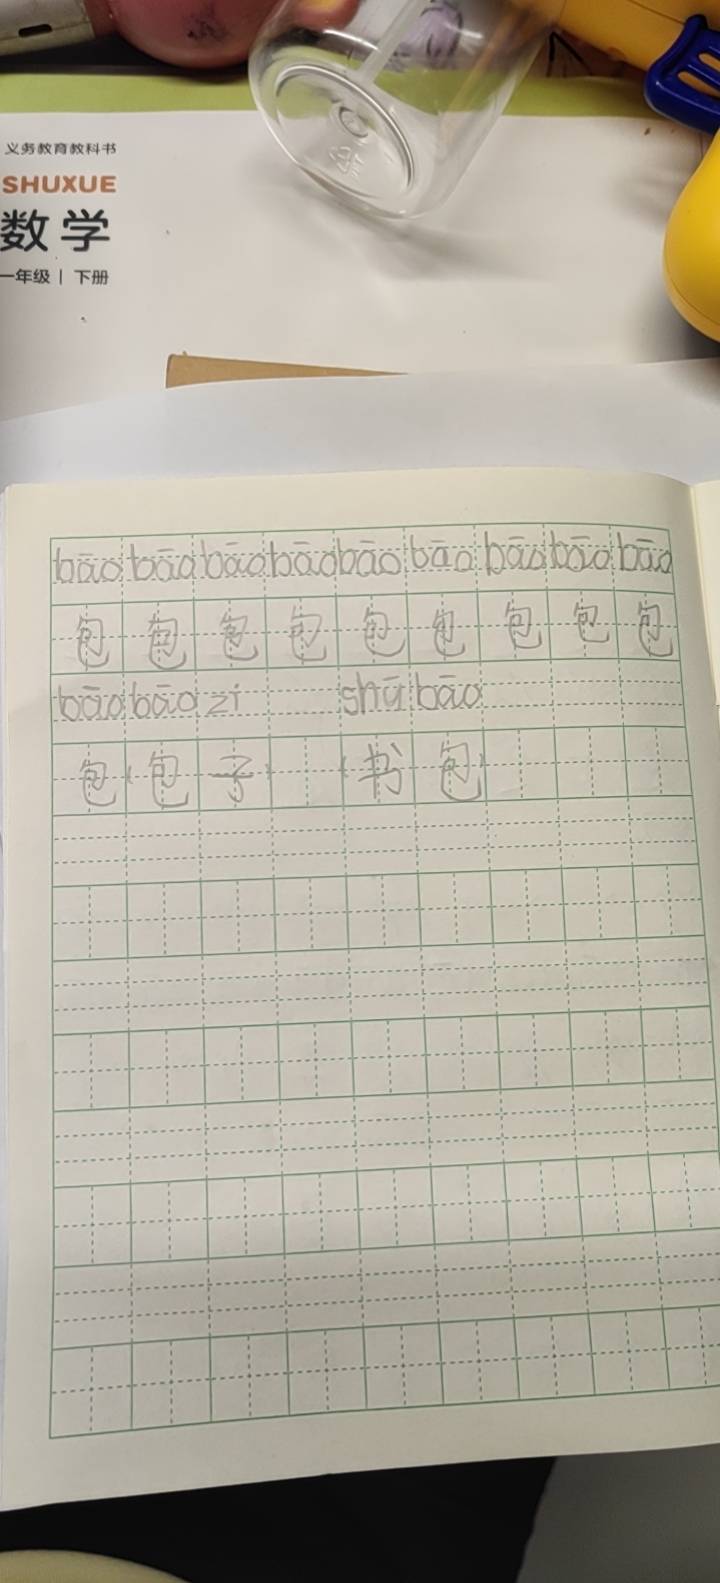 义务教育教科书
SHUXUE
数学
一年级 | 下册
bāo bāo bāo bāo bāo bāo bāo bāo bāo
包 包 包 包 包 包 包 包 包
bāo bāo zi shū bāo
包(包子)(书包)